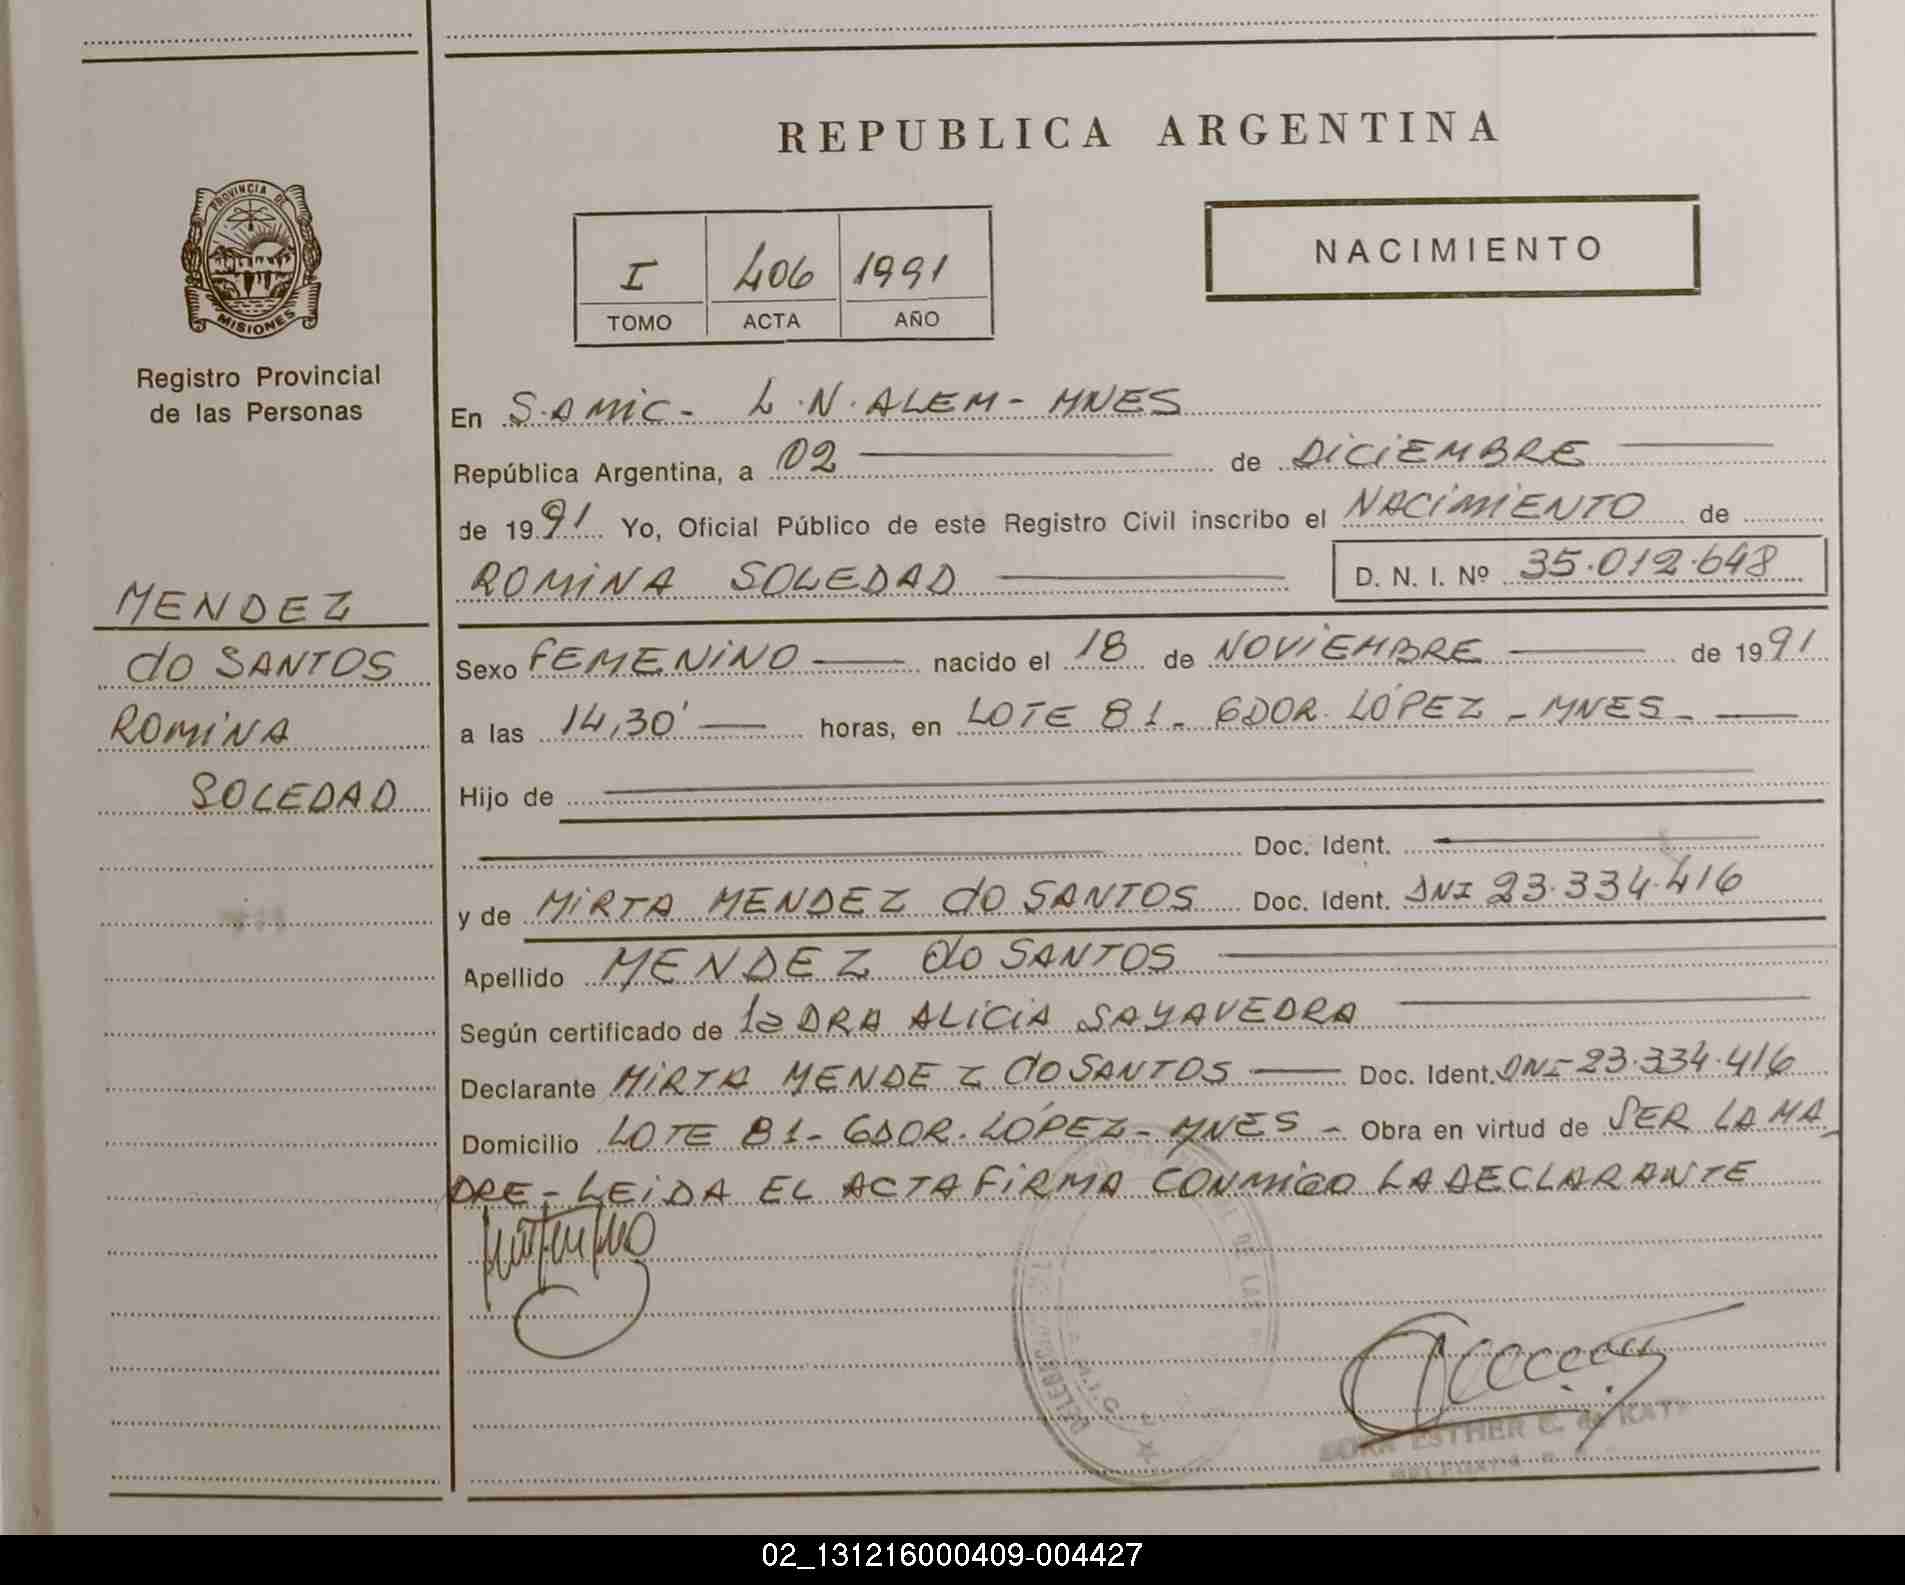 REPUBLICA ARGENTINA
PROVINCIA DE
MISIONES
Registro Provincial
de las Personas
NACIMIENTO
I 406 1991
TOMO ACTA AÑO
En S.AMIC- L.N.ALEM- MNES
República Argentina, a 02 de DICIEMBRE
de 1991 Yo, Oficial Público de este Registro Civil inscribo el NACIMIENTO de
ROMINA SOLEDAD D. N. I. Nº 35.012.648
MENDEZ
do SANTOS
ROMINA
SOLEDAD
Sexo FEMENINO nacido el 18 de NOVIEMBRE de 1991
a las 14,30' horas, en LOTE 81- GDOR. LÓPEZ - MNES-
Hijo de
Doc. Ident.
y de MIRTA MENDEZ do SANTOS Doc. Ident. DNI 23.334.416
Apellido MENDEZ do SANTOS
Según certificado de la DRA ALICIA SAYAVEDRA
Declarante MIRTA MENDEZ do SANTOS Doc. Ident. DNI 23.334.416
Domicilio LOTE 81- GDOR. LÓPEZ- MNES - Obra en virtud de SER LA MA
DRE- LEIDA EL ACTA FIRMA CONMIGO LA DECLARANTE
DE LAS
ESTHER C. de
02_131216000409-004427